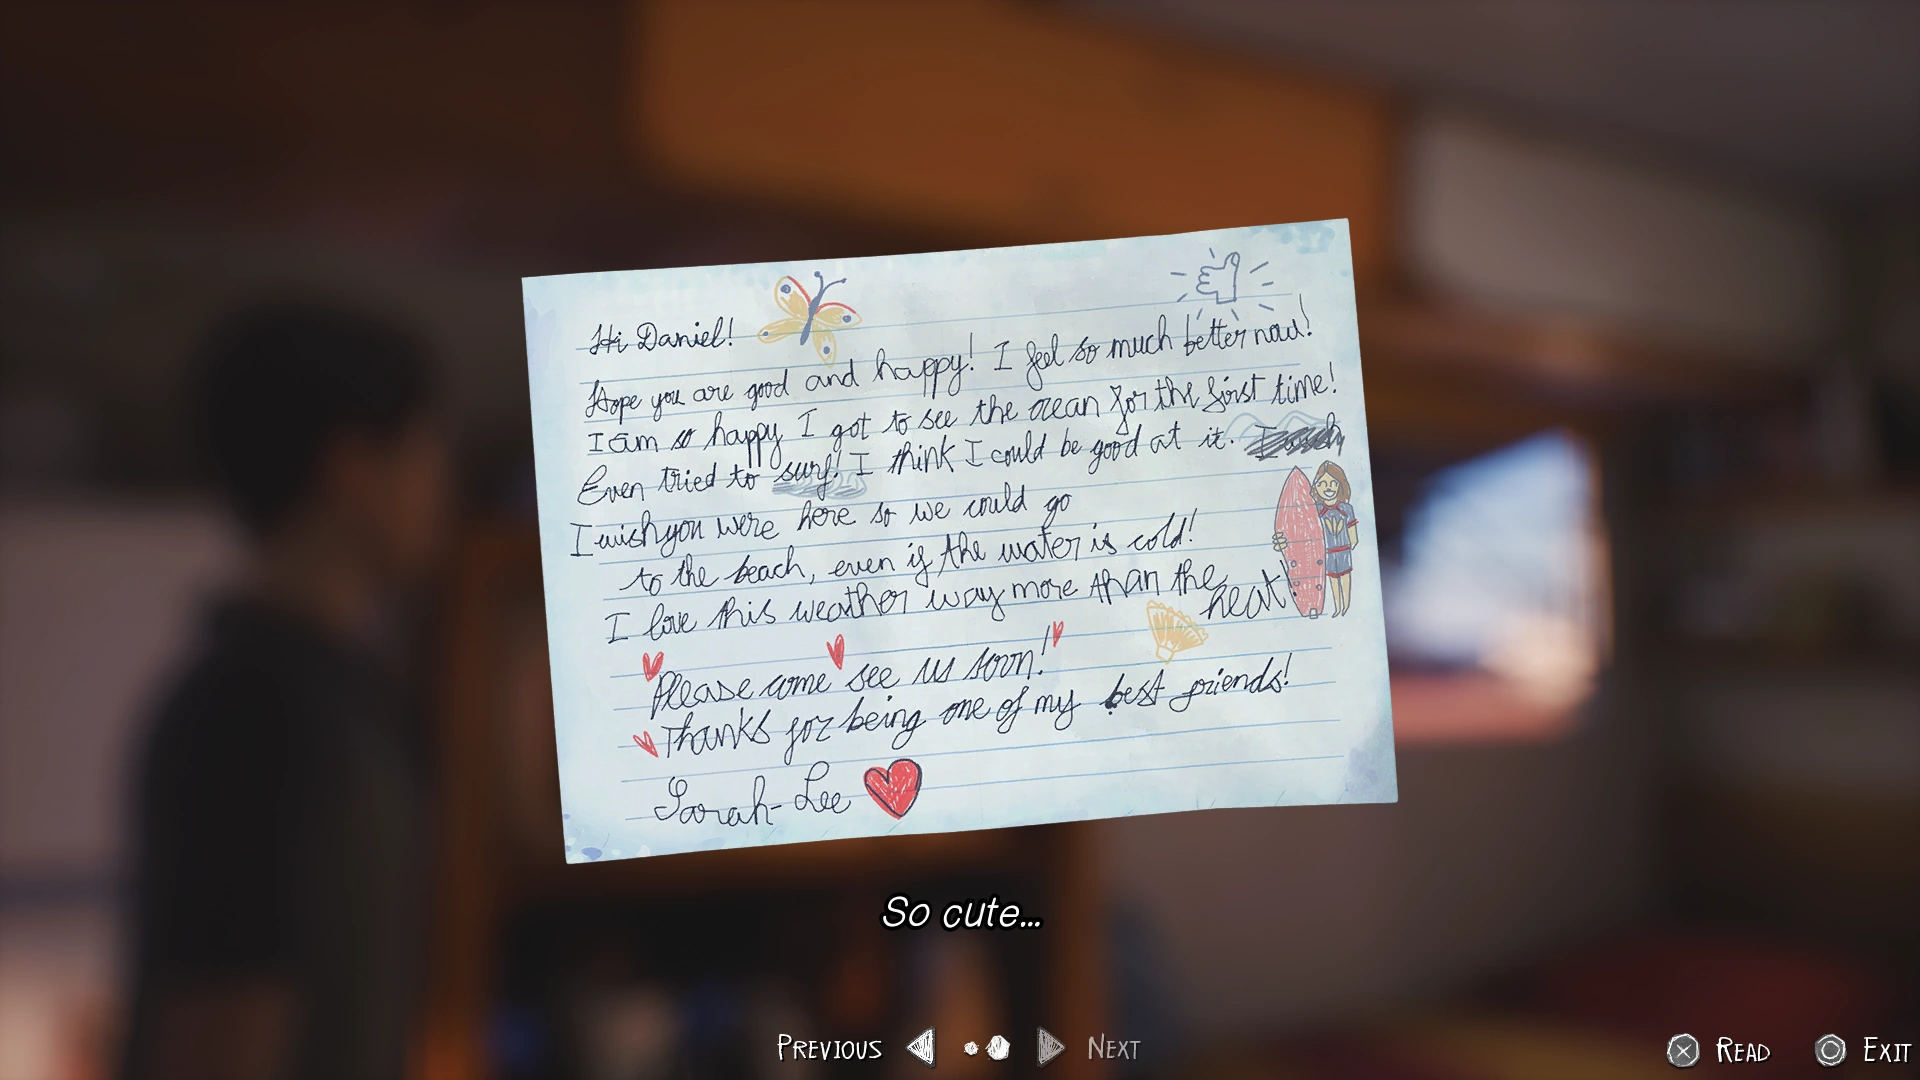 Hi Daniel!
Hope you are good and happy! I feel so much better now!
I am so happy I got to see the ocean for the first time!
Even tried to surf! I think I could be good at it.
I wish you were here so we could go
to the beach, even if the water is cold!
I love this weather way more than the heat!
Please come see us soon!
Thanks for being one of my best friends!
Sarah-Lee
So cute...
PREVIOUS NEXT
READ EXIT